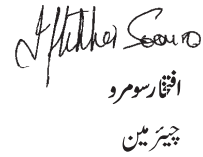 Iftikhar Soomro
افتخار سومرو
چیئرمین